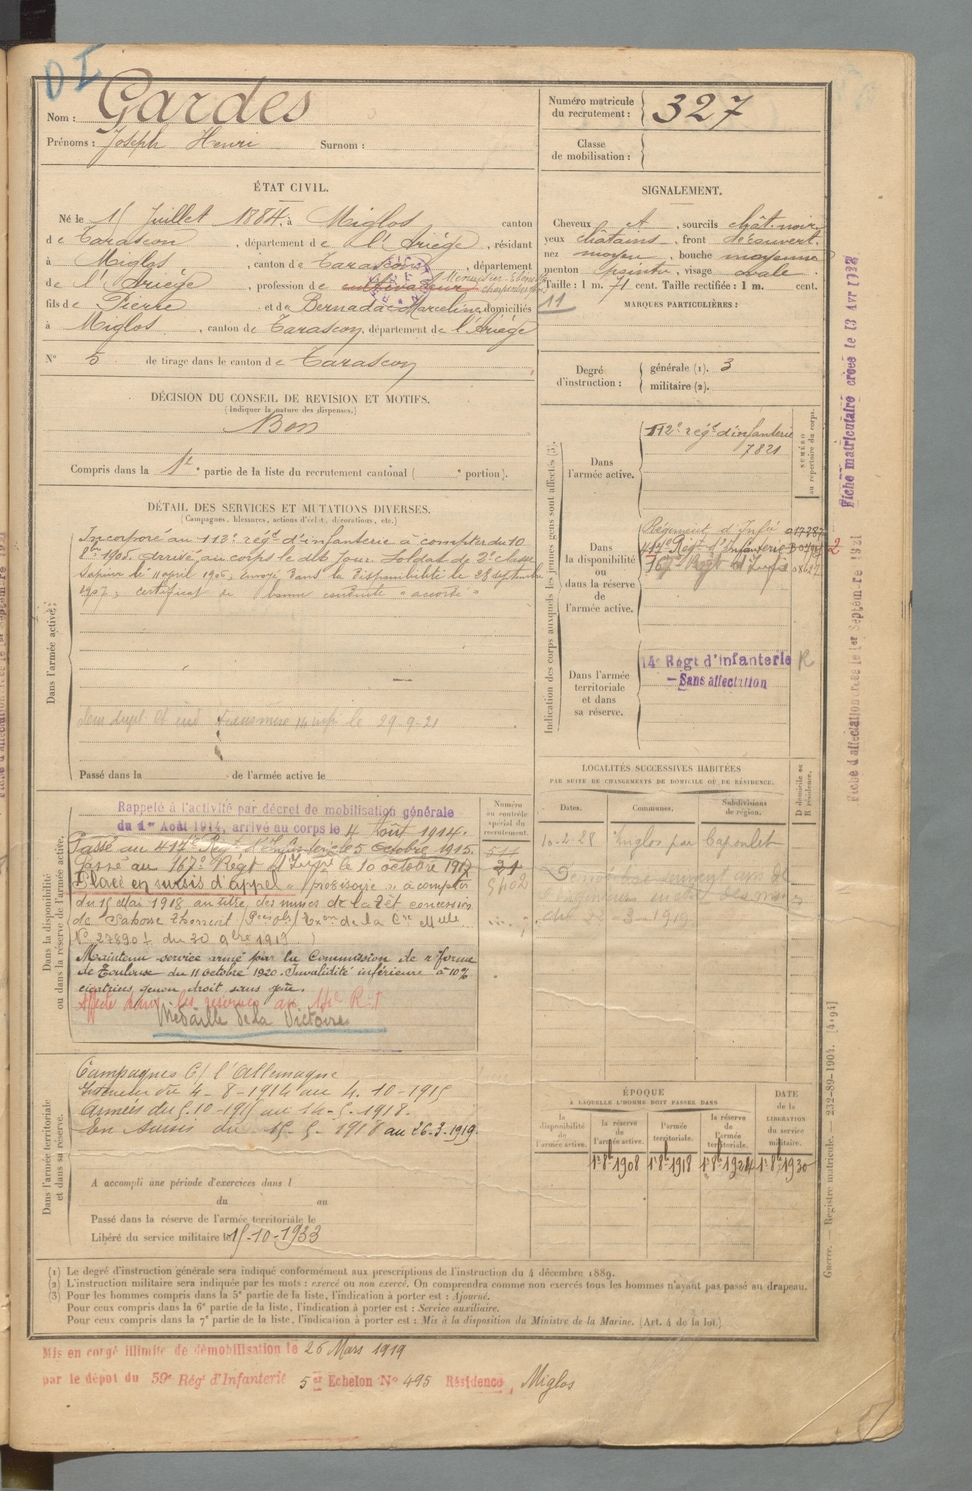 Nom : Gardes
Prénoms : Joseph Henri Surnom :
Numéro matricule du recrutement : 327
Classe de mobilisation :
ÉTAT CIVIL.
Né le 15 Juillet 1884, à Miglos canton
de Tarascon, département de l'Ariège, résidant
à Miglos, canton de Tarascon, département
de l'Ariège, profession de cultivateur
fils de Pierre et de Bernadac Marceline, domiciliés
à Miglos, canton de Tarascon, département de l'Ariège
N° 5 de tirage dans le canton de Tarascon
SIGNALEMENT.
Cheveux et, sourcils chât. noir
yeux châtains, front découvert
nez moyen, bouche moyenne
menton pointu, visage ovale.
Taille : 1 m. 71 cent. Taille rectifiée : 1 m. cent.
11
MARQUES PARTICULIÈRES :
Degré d'instruction : générale (1). 3
militaire (2).
DÉCISION DU CONSEIL DE REVISION ET MOTIFS.
(Indiquer la nature des dispenses.)
Bon
Compris dans la 1re partie de la liste du recrutement cantonal ( e portion).
DÉTAIL DES SERVICES ET MUTATIONS DIVERSES.
(Campagnes, blessures, actions d'éclat, décorations, etc.)
Dans l'armée active.
Incorporé au 112e rég.t d'infanterie à compter du 10
8bre 1905, arrivé au corps le dit jour. Soldat de 2e classe
Sapeur le 11 april 1906, envoyé dans la disponibilité le 28 septembre
1907; certificat de bonne conduite "accordé"
le 29-9-21
Passé dans la de l'armée active le
Indication des corps auxquels les jeunes gens sont affectés (3).
NUMÉRO au répertoire du corps.
Dans l'armée active.
112e rég.t d'infanterie
7821
Dans la disponibilité ou dans la réserve de l'armée active.
Régiment d'Inf.ie
417e Rég.t d'Infanterie
167e Rég.t d'Inf.ie
Dans l'armée territoriale et dans sa réserve.
14e Régt d'Infanterie
Sans affectation
LOCALITÉS SUCCESSIVES HABITÉES
PAR SUITE DE CHANGEMENTS DE DOMICILE OU DE RÉSIDENCE.
Dates. Communes. Subdivisions de région. D domicile ou R résidence.
10-2-28 Miglos par Capoulet
Dans la disponibilité ou dans la réserve de l'armée active.
Numéro au contrôle spécial du recrutement.
Rappelé à l'activité par décret de mobilisation générale
du 1er Août 1914, arrivé au corps le 4 Août 1914.
Passé au 417e Rég.t d'Infanterie le 5 octobre 1915.
Passé au 167e Régt d'Infie le 10 octobre 1917
Placé en sursis d'appel "provisoire" à compter
du 15 Mai 1918 au titre des mines
du 20 9bre 1919.)
Maintenu service armé par la Commission de réforme
de Toulouse du 11 octobre 1920. Invalidité inférieure à 10%
Affecté dans les réserves au 14e R.I
Médaille de la Victoire
Dans l'armée territoriale et dans sa réserve.
Campagnes C/ l'Allemagne
Intérieur du 4-8-1914 au 4-10-1915
Armées du 5-10-1915 au 14-5-1918.
En sursis du 15-5-1918 au 26-3-1919.
A accompli une période d'exercices dans l
du au
Passé dans la réserve de l'armée territoriale le
Libéré du service militaire le 15-10-1933
ÉPOQUE
À LAQUELLE L'HOMME DOIT PASSER DANS
la disponibilité de l'armée active. la réserve de l'armée active. l'armée territoriale. la réserve de l'armée territoriale. DATE de la LIBÉRATION du service militaire.
1er 8bre 1908 1er 8bre 1918 1er 8bre 1924 1er 8bre 1930
(1) Le degré d'instruction générale sera indiqué conformément aux prescriptions de l'instruction du 4 décembre 1889.
(2) L'instruction militaire sera indiquée par les mots : exercé ou non exercé. On comprendra comme non exercés tous les hommes n'ayant pas passé au drapeau.
(3) Pour les hommes compris dans la 5e partie de la liste, l'indication à porter est : Ajourné.
Pour ceux compris dans la 6e partie de la liste, l'indication à porter est : Service auxiliaire.
Pour ceux compris dans la 7e partie de la liste, l'indication à porter est : Mis à la disposition du Ministre de la Marine. (Art. 4 de la loi.)
Mis en congé illimité de démobilisation le 26 Mars 1919
par le dépôt du 59e Régt d'Infanterie 5e Echelon N° 495 Résidence, Miglos
Fiche matriculaire créée le 13 Avr 1932
Fiche d'affectation créée le 1er Septembre 1921
Guerre. — Registre matricule. — 232-89-1904. [4494]